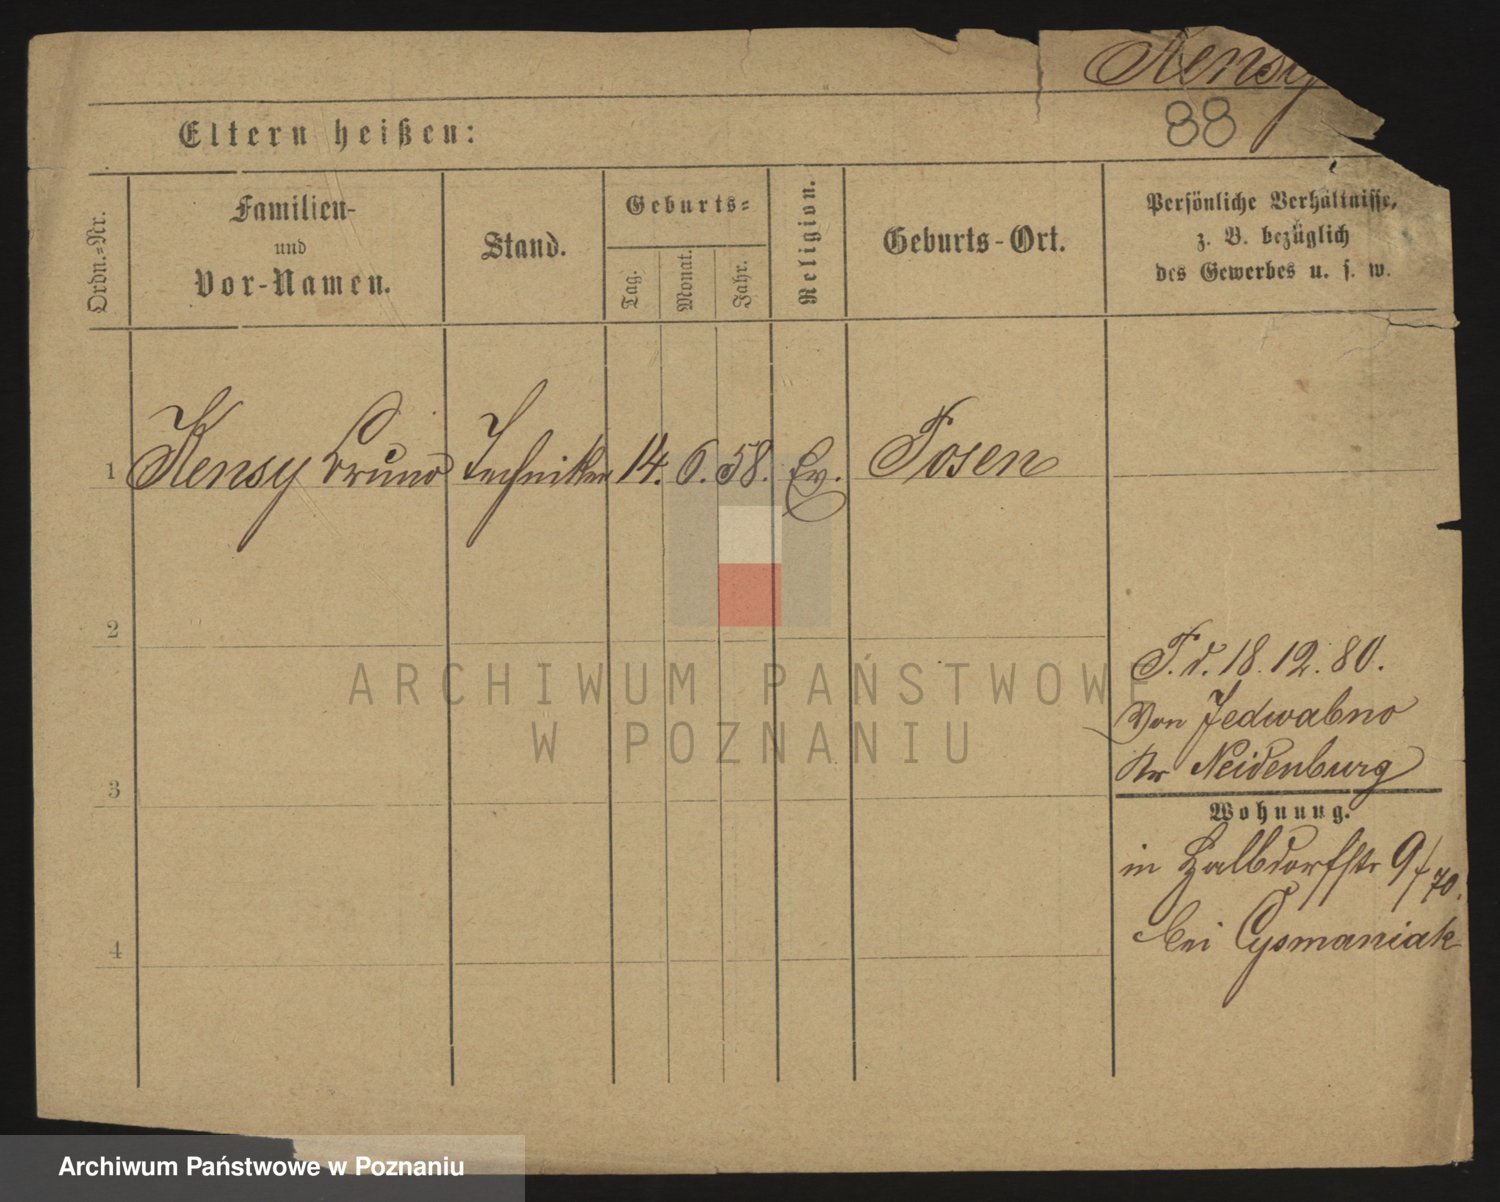 Kensy
88
Eltern heißen:
Ordn.-Nr.
Familien-
und
Vor-Namen.
Stand.
Geburts-
Tag.
Monat.
Jahr.
Religion.
Geburts-Ort.
Persönliche Verhältnisse,
z. B. bezüglich
des Gewerbes u. s. w.
1 Kensy Bruno Techniker 14. 6. 58. Ev. Posen
2
P. d. 18. 12. 80.
Von Jedwabno
Kr Neidenburg
3
Wohnung.
in Halbdorfstr 9/70.
bei Cysmaniak
4
ARCHIWUM PAŃSTWOWE
W POZNANIU
Archiwum Państwowe w Poznaniu